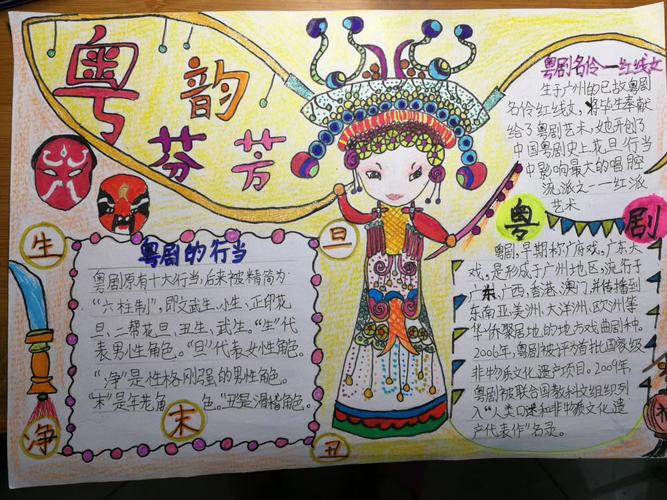 粤韵
芬芳
粤剧名伶—红线女
生于广州的已故粤剧
名伶红线女，将毕生奉献
给了粤剧艺术，她开创了
中国粤剧史上花旦行当
中影响最大的唱腔
流派之一——红派
艺术
生
旦
净
末
丑
粤剧的行当
粤剧原有十大行当，后来被精简为
“六柱制”，即文武生、小生、正印花
旦、二帮花旦、丑生、武生。“生”代
表男性角色。“旦”代表女性角色。
“净”是性格刚强的男性角色。
“末”是年老角色。“丑”是滑稽角色。
粤剧
粤剧，早期称广府戏，广东大
戏，是形成于广州地区，流行于
广东、广西，香港、澳门，并传播到
东南亚、美洲、大洋洲、欧洲等
华侨聚居地的地方戏曲剧种。
2006年，粤剧被评为首批国家级
非物质文化遗产项目。2009年
粤剧被联合国教科文组织列
入“人类口述和非物质文化遗
产代表作”名录。